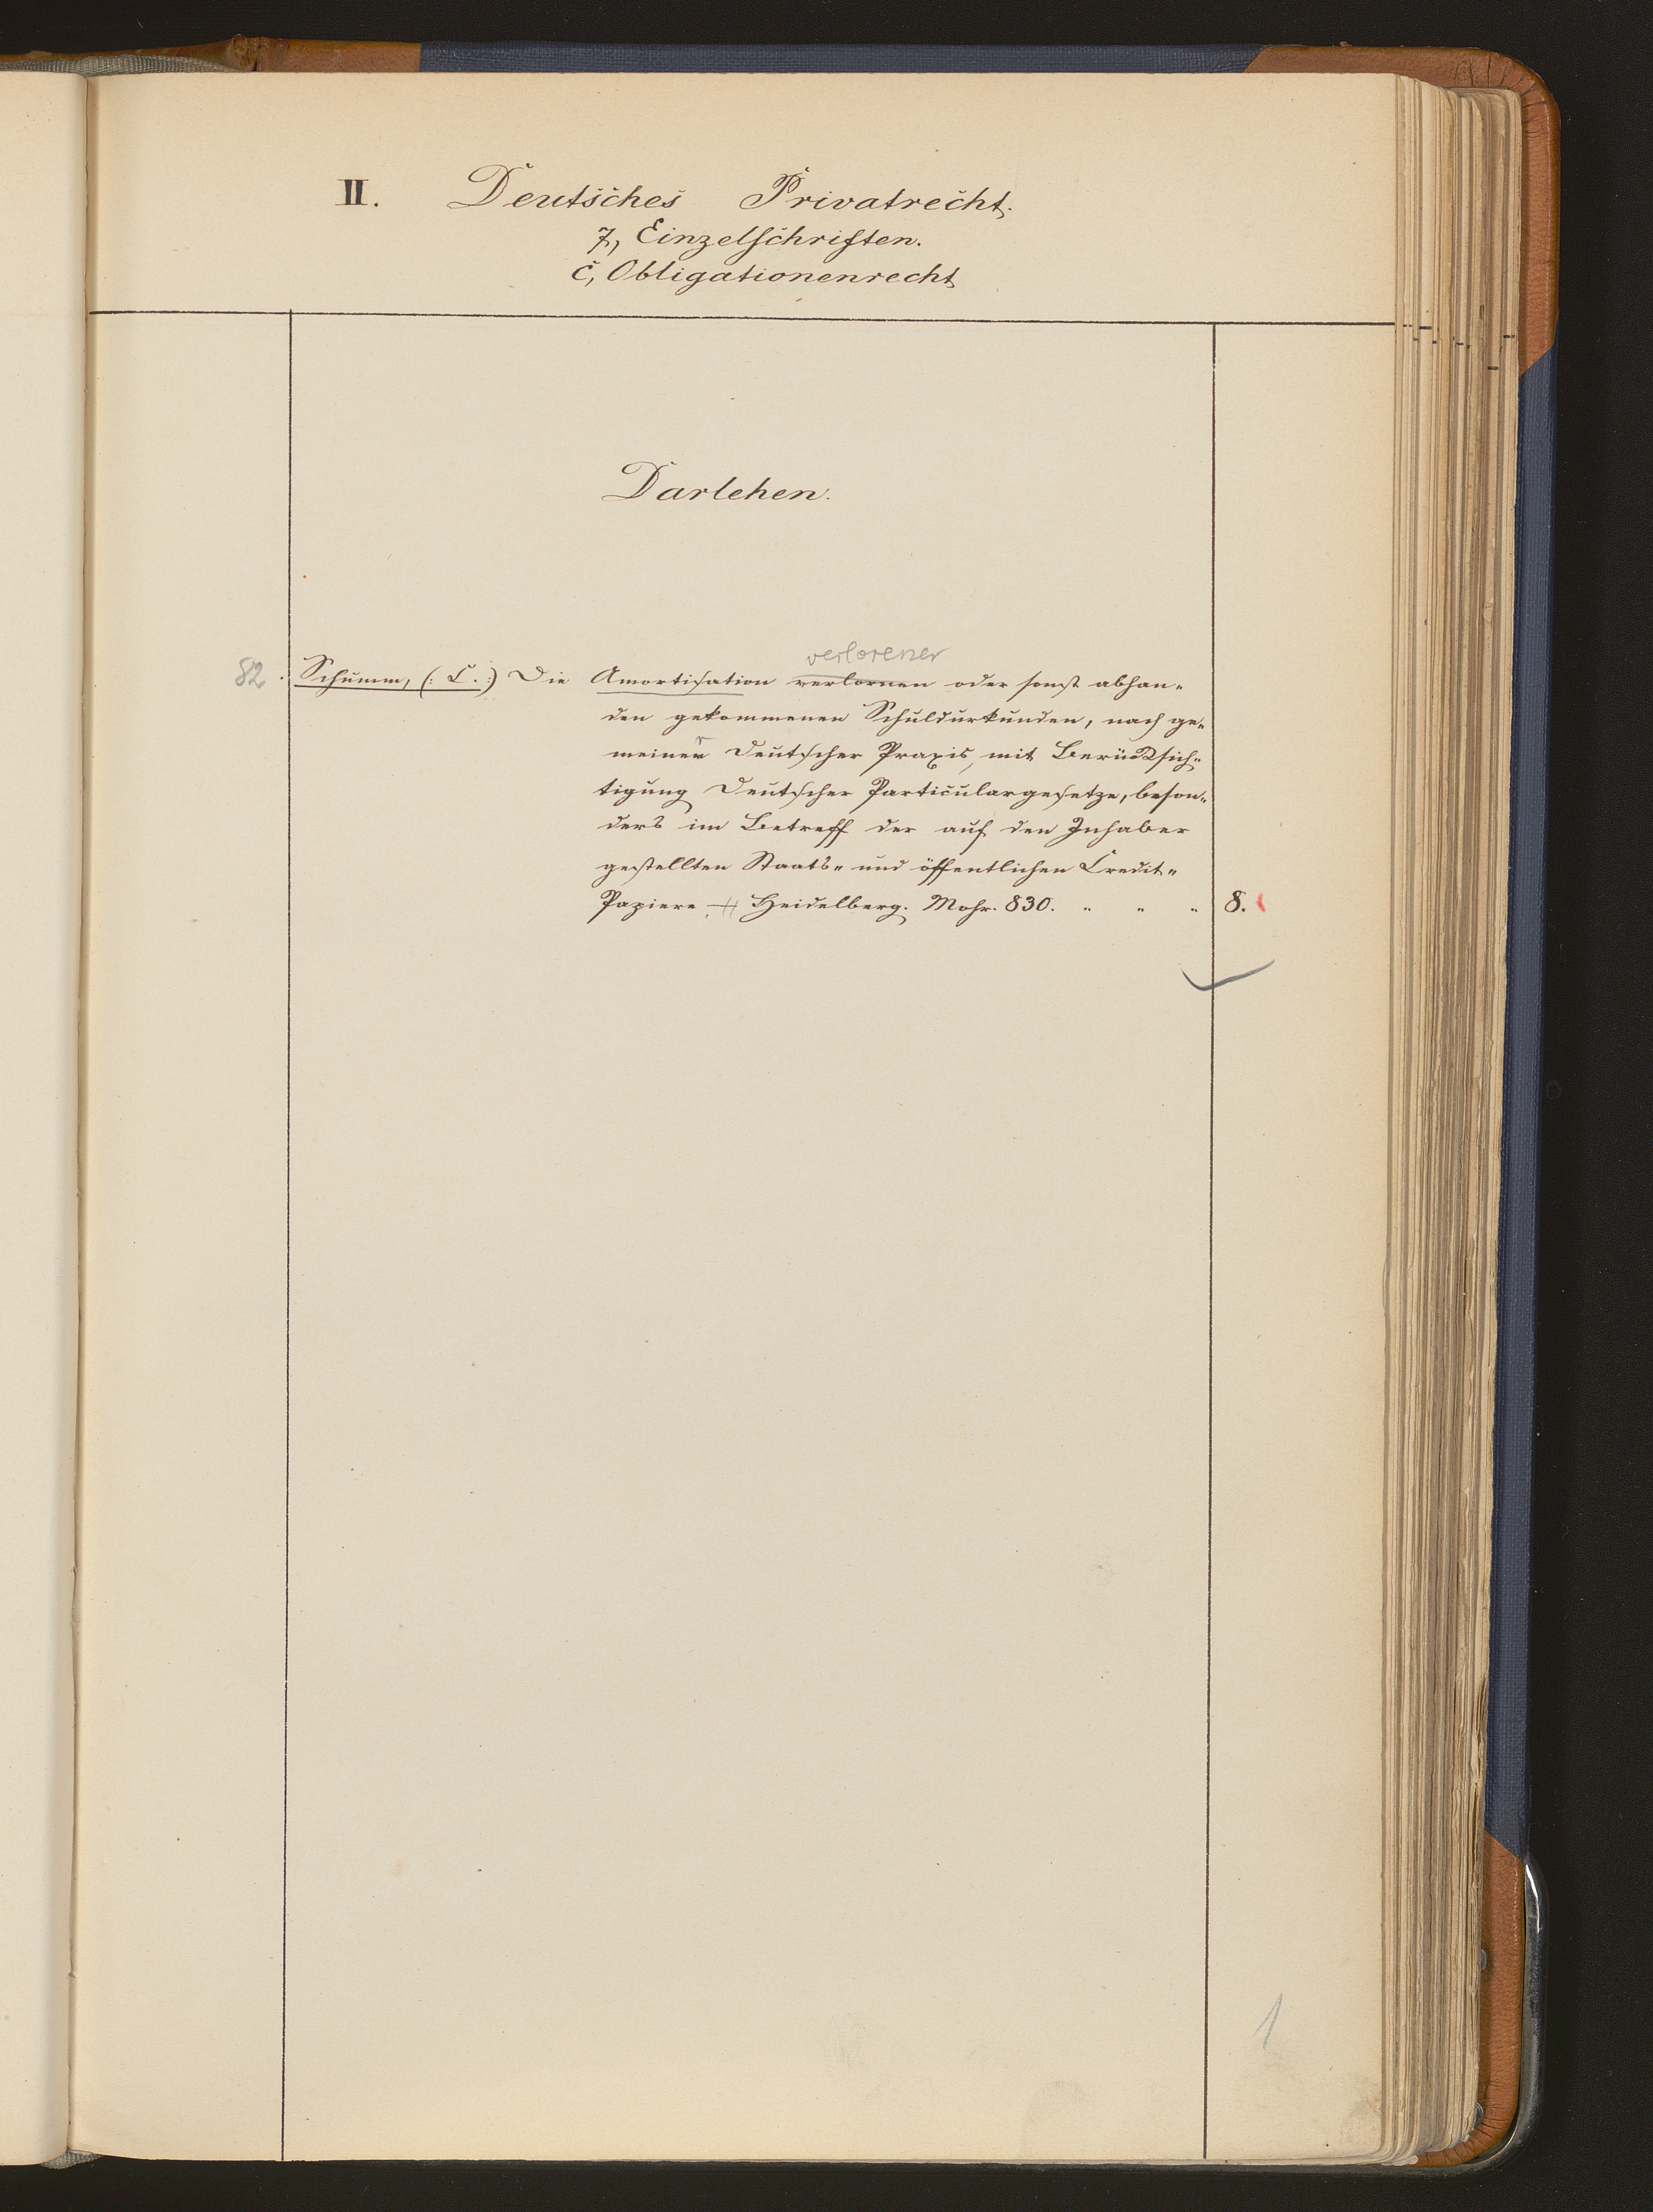 II. Deutsches Privatrecht.
7, Einzelschriften.
c, Obligationenrecht
Darlehen.
verlorener
82. Schumm, (: C. :) Die Amortisation verlornen oder sonst abhan-
den gekommenen Schuldurkunden, nach ge-
meiner Deutscher Praxis, mit Berücksich-
tigung Deutscher Particulargesetze, beson-
ders im Betreff der auf den Inhaber
gestellten Staats- und öffentlichen Credit-
Papiere. Heidelberg. Mohr. 830. " " " 8.
1